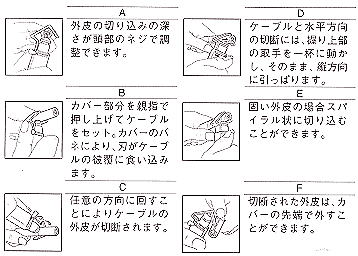 A
外皮の切り込みの深
さが頭部のネジで調
整できます。
B
カバー部分を親指で
押し上げてケーブル
をセット。カバーのバ
ネにより、刃がケーブ
ルの被覆に食い込み
ます。
C
任意の方向に回すこ
とによりケーブルの
外皮が切断されます。
D
ケーブルと水平方向
の切断には、握り上部
の取手を一杯に動か
し、そのまま、縦方向
に引っぱります。
E
固い外皮の場合スパ
イラル状に切り込む
ことができます。
F
切断された外皮は、カ
バーの先端で外すこ
とができます。